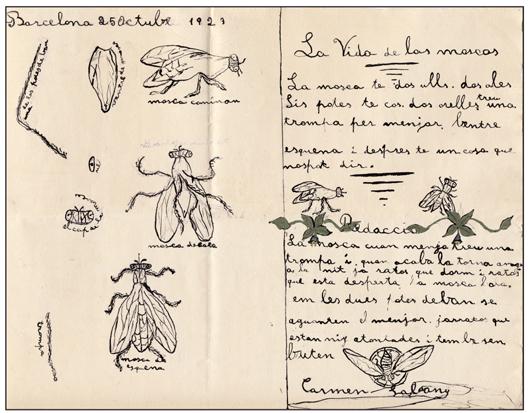 Barcelona 25 Octubre 1923
mosca caminan
el cap
mosca de
mosca
esquena
trompa
La Vida de las moscas
La mosca te dos ulls. dos ales
Sis potes te cos. dos orelles treu una
trompa per menjar. bentre
esquena i despres te un cosa que
nospot dir.
Redaccio
La mosca cuan menja treu una
trompa i. quan acaba la torna
a la nit ja ratos que dorm i ratos
que esta desperta la mosca
em les dues potes deban se
aguanten I menjar.
estan mix i tambe sen
buten
Carmen